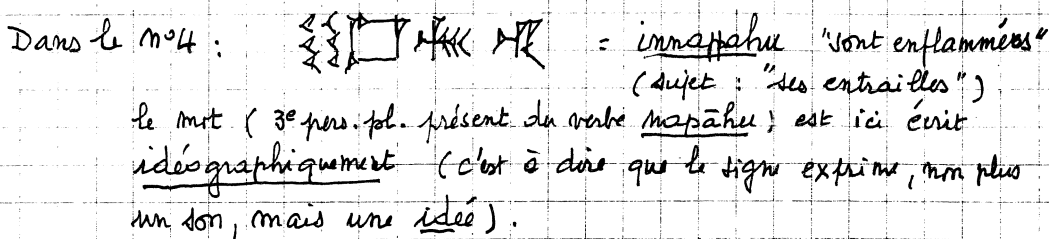 Dans le n°4 : = innappahu "sont enflammées"
(sujet : "ses entrailles")
le mot (3e pers. pl. présent du verbe napāhu) est ici écrit
idéographiquement (c'est à dire que le signe exprime, non plus
un son, mais une idée).